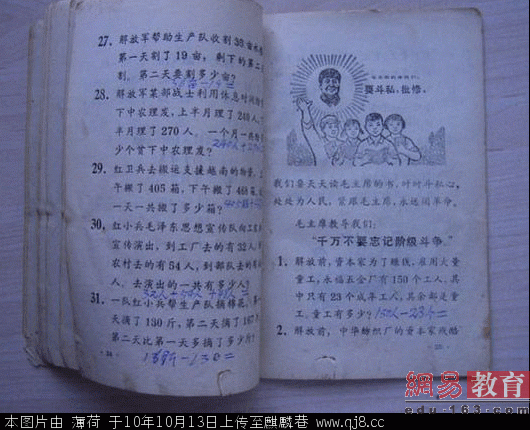 27. 解放军帮助生产队收割
第一天割了19亩,剩下的第二
割,第二天要割多少亩?
28. 解放军某部战士利用休息时间
下中农理发,上半月理了240人
半月理了270人,一个月一共
少个贫下中农理发?
29. 红卫兵去搬运支援越南的物资,上
午搬了405箱,下午搬了
天一共搬了多少箱?
30. 红小兵毛泽东思想宣传队向工农
宣传演出,到工厂去的有32人,
农村去的有54人,到部队去的有
人,去演出的一共有多少人?
31. 一队红小兵帮生产队摘棉花,第一
天摘了130斤,第二天摘了
第二天比第一天多摘了多少斤?
要斗私,批修。
我们要天天读毛主席的书,时时斗私心,
处处为人民,紧跟毛主席,永远闹革命。
毛主席教导我们:
“千万不要忘记阶级斗争。”
1. 解放前,资本家为了赚钱,采用大量
童工,永福五金厂有150个工人,其
中只有23个成年工人,其余都是童
工,童工有多少?150人-23个=
2. 解放前,中华棉织厂的资本家残酷
網易 教育
edu.163.com
本图片由 薄荷 于10年10月13日上传至麒麟巷 www.qj8.cc